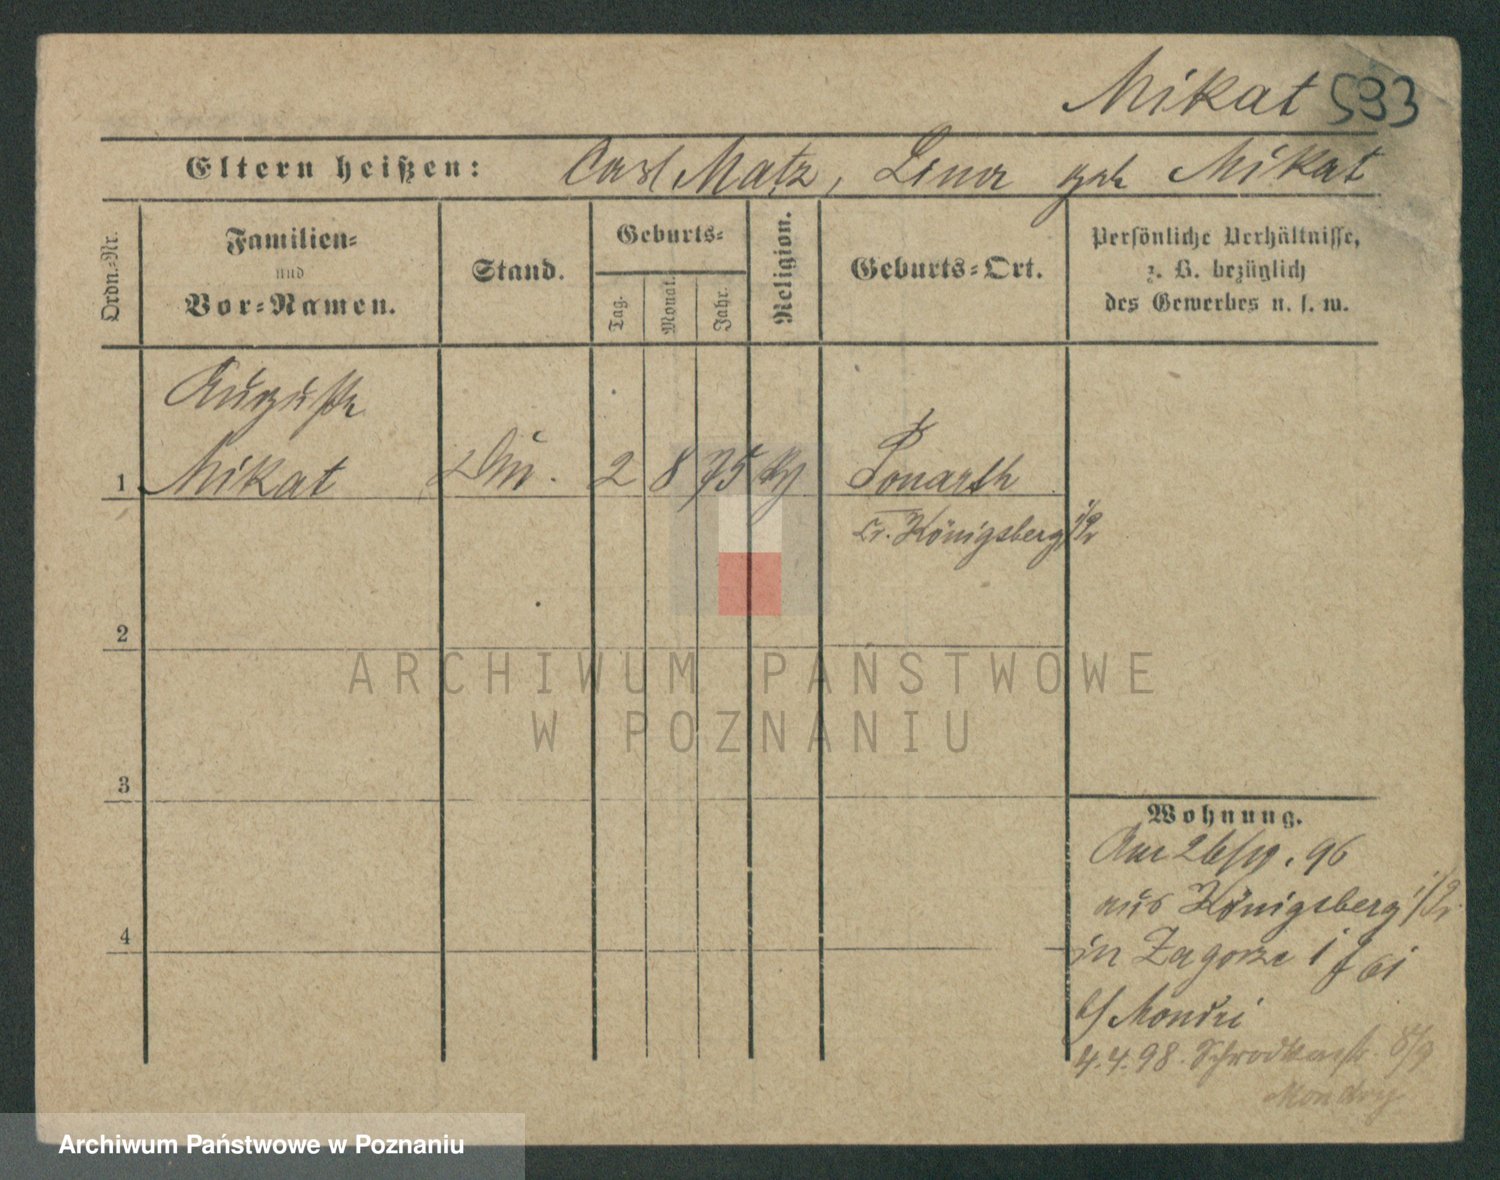 Mikat 533
Eltern heißen: Carl Matz, Lina geb Mikat
Ordn.-Nr.
Familien-
und
Vor-Namen.
Stand.
Geburts-
Tag.
Monat.
Jahr.
Religion.
Geburts-Ort.
Persönliche Verhältnisse,
z. B. bezüglich
des Gewerbes u. s. w.
Auguste
1 Mikat 2 8 75 Ponarth
Kr. Königsberg i/Pr
2
3
4
ARCHIWUM PAŃSTWOWE
W POZNANIU
Wohnung.
96
aus Königsberg i/Pr.
in Zagorze
b/ Mondri
4.4.98. 8/9
Mondry
Archiwum Państwowe w Poznaniu